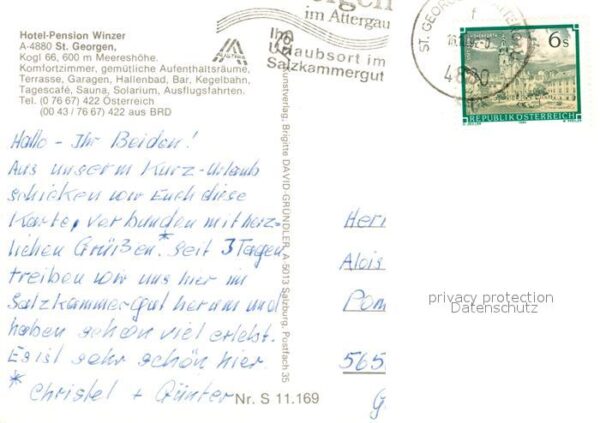 Hotel-Pension Winzer
A-4880 St. Georgen,
Kogl 66, 600 m Meereshöhe.
Komfortzimmer, gemütliche Aufenthaltsräume,
Terrasse, Garagen, Hallenbad, Bar, Kegelbahn,
Tagescafé, Sauna, Solarium, Ausflugsfahrten.
Tel. (0 76 67) 422 Österreich
(00 43 / 76 67) 422 aus BRD
im Attergau
Ihr
Urlaubsort im
Salzkammergut
ST. GEORGEN
4880
6 s
REPUBLIK ÖSTERREICH
Hallo - Ihr Beiden!
Aus unserm Kurz-Urlaub
schicken wir Euch diese
Karte, verbunden mit herz-
lichen Grüßen. * Seit 3 Tagen
treiben wir uns hier im
Salzkammergut herum und
haben schon viel erlebt.
Es ist sehr schön hier.
* Christel + Günter
Kunstverlag, Brigitte DAVID-GRÜNDLER, A-5013 Salzburg, Postfach 35
Nr. S 11.169
Herr
Alois
Pom
565
G
privacy protection
Datenschutz